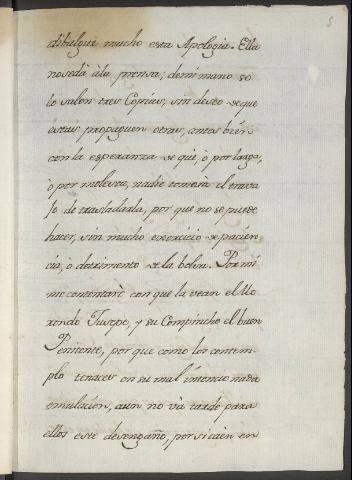 5
dibulgue mucho esta Apologia. Ella
no se dà àla prensa; de mi mano so
lo salen tres Copias, sin deseo de que
estas propaguen otras, antes bien
con la esperanza de que, ò por larga,
ò por molesta, nadie tomarà el trava
jo de trasladarla, por que no se puede
hacer, sin mucho exercicio de pacien
cia, ò detrimento de la bolsa. Por mi
me contentarè con que la vean el Mo
rondo Tusepe, y su Compinche el buen
Penitente, por que como los contem-
plo tenaces en su mal intencionada
emulacion, aun no và tarde para
ellos este desengaño, por si caen en